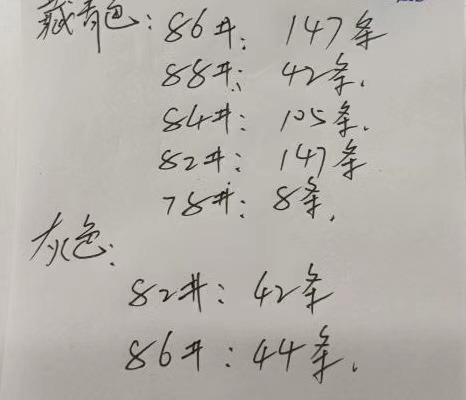 藏青色：86#：147条
88#：42条.
84#：105条.
82#：147条
78#：8条.
灰色：
82#：42条
86#：44条.